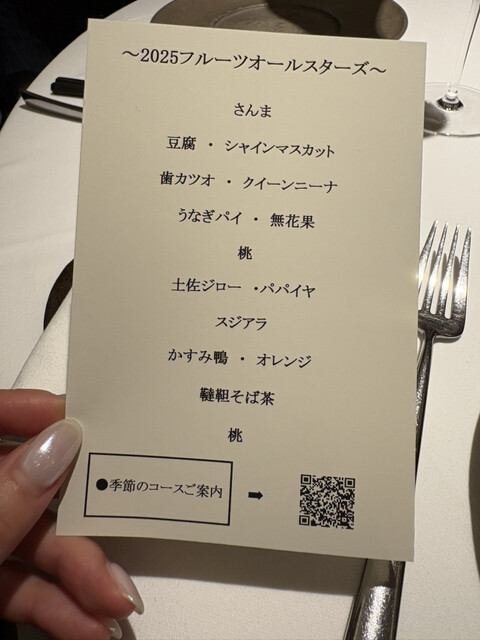 ～2025フルーツオールスターズ～
さんま
豆腐 ・ シャインマスカット
歯カツオ ・ クイーンニーナ
うなぎパイ ・ 無花果
桃
土佐ジロー ・パパイヤ
スジアラ
かすみ鴨 ・ オレンジ
韃靼そば茶
桃
●季節のコースご案内 ➡